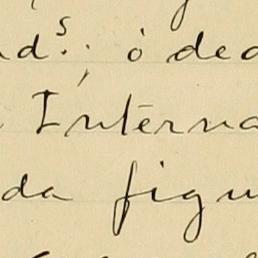 nd.s; ò ded
Interna
da figu